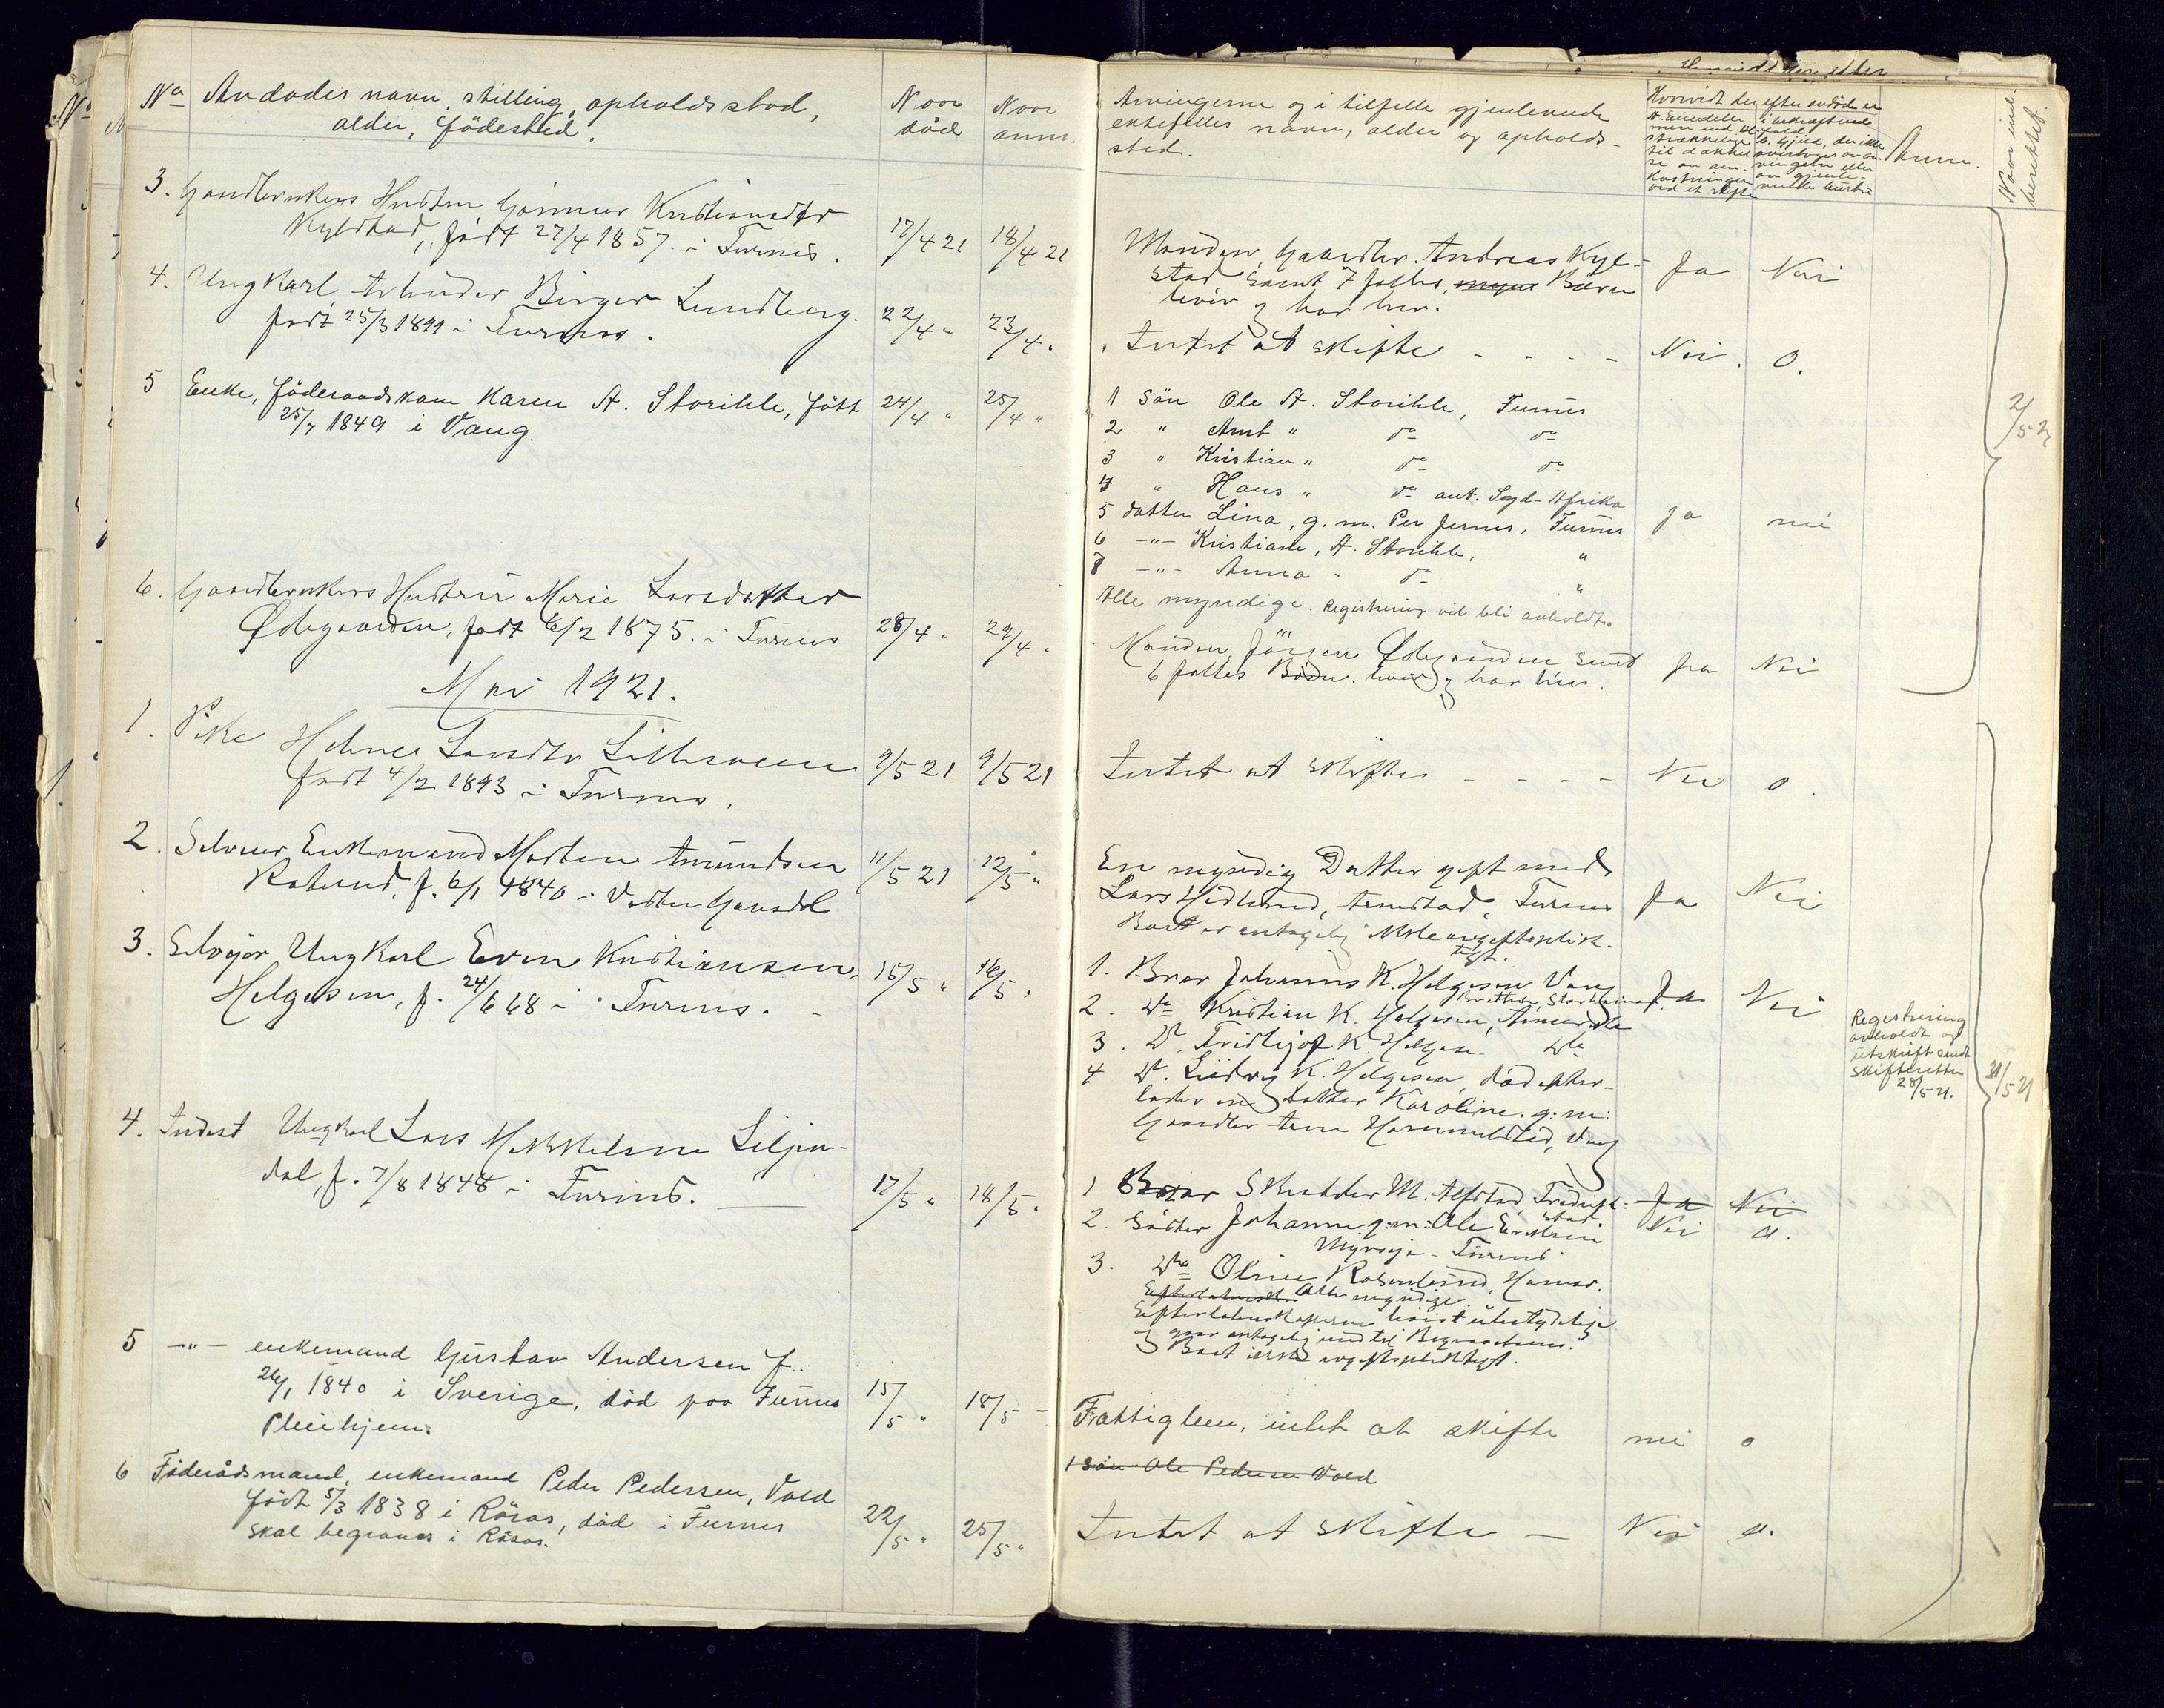 No Avdødes navn, stilling, opholdssted,
alder, födested.
Naar
död
Naar
anm.
3. Gaardbrukers Hustru Gunnor Kristiansdtr
Kylstad, født 27/4 1857 i Furnes. 17/4 21 18/4 21
4. Ungkarl Arbeider Birger Lundberg.
født 25/3 1891 i Furnes. 22/4 " 23/4 "
5 Enke, föderaadskone Karen A. Storihle, født 24/4 " 25/4 "
25/7 1849 i Vang.
6. Gaardbrukers Hustru Marie Larsdatter
Ødegaarden, født 6/2 1875. i Furnes 28/4 " 29/4 "
Mai 1921.
1. Pike Helene Larsdtr
født 4/2 1893 i Furnes. 9/5 21 9/5 21
2. Selveier Enkemand Morten Amundsen 11/5 21 12/5 "
f. 6/1 1840 i Vestre Gausdal
3. Selvejer Ungkarl Even Kristiansen 15/5 " 16/5 "
Helgesen, f. 24/6 68 i Furnes.
4. Inderst Ungkarl Lars Mikkelsen Liljen-
dal, f. 7/8 1848 i Furnes. 17/5 " 18/5 "
5 -"- enkemand Gustav Andersen f.
26/1 1840 i Sverige, död paa Furnes 15/5 " 18/5 -
Pleiehjem.
6 Föderådsmand, enkemand Peder Pedersen, Vold
født 5/3 1838 i Röros, död i Furnes 22/5 " 25/5 "
skal begraves i Röros.
Arvingerne og i tilfelle gjenlevende
ektefelles navn, alder og opholds-
sted.
Hvorvidt der efter avdøde er
Anm.
Naar ind-
berettet.
Manden, Gaardbr. Andreas Kyl-
stad samt 7 felles, myn Børn Ja Nei
lever og bor her.
Intet at skifte - - - - Nei. 0.
1 Sön Ole A. Storihle, Furnes
2 " Arnt " do do
3 " Kristian " do do
4 " Hans " do ant. Syd-Afrika
5 datter Lina, g.m. Per Jernes, Furnes ja nei
6 -"- Kristiane, A. Storihle, "
7 -"- Anna " do "
Alle myndige. Registrering vil bli avholdt.
2/5 21
Manden, Jörgen Ødegaarden samt
6 felles Börn. lever og bor her. Ja Nei
Intet at skifte - - - - Nei 0.
En myndig Datter gift med
Lars Hedlund, Arnestad, Furnes Ja Nei
Boet er antagelig ikke avgiftsplik-
tigt.
1. Bror Johannes K. Helgesen Vang Ja Nei
2. do Kristian K. Helgesen,
3. do Fridtjof K. Helgesen do
4 do Ludvig K. Helgesen, død efter-
lader en Datter Karoline. g.m:
Gaardbr. Vang
Registrering
avholdt og
utskrift sendt
skifteretten
28/5 21.
31/5 21
1 Bror M. Alfstad, Fredrik- Ja Nei
stad. Nei 0.
2. Søster Johanne g:m: Ole Eriksen
Furnes
3. do Oline Rosenlund, Hamar.
Alle myndige
Efterladenskaperne höist ubetydelige
og gaar antagelig med til Begravelsen.
Boet ikke avgiftspliktigt.
Fattiglem, intet at skifte nei 0
1 Sön Ole Pedersen Vold
Intet at skifte - Nei 0.